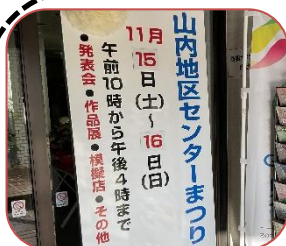 山内地区センターまつり
11月15日(土)~16日(日)
午前10時から午後4時まで
●発表会●作品展●模擬店●その他